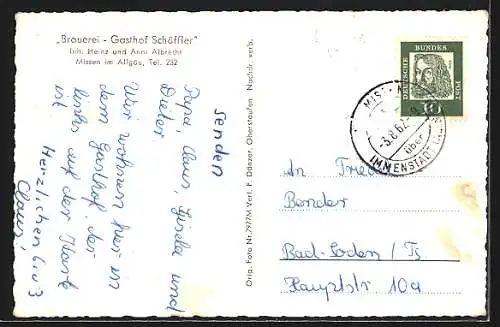 „Brauerei - Gasthof Schäffler"
Inh. Heinz und Anni Albrecht
Missen im Allgäu, Tel. 232
Wir wohnen hier in
dem Gasthof, der
links auf der Karte
ist.
Herzlichen Gruß
Claus,
senden
Papa, Claus, Gisela und
Dieter
Orig.-Foto Nr. 7977M Verl. F. Dänzer, Oberstaufen Nachdr. verb.
DEUTSCHE BUNDESPOST
10
-3.8.62
über
IMMENSTADT
An Fried
Bender
Bad-Soden / Ts
Hauptstr. 10a